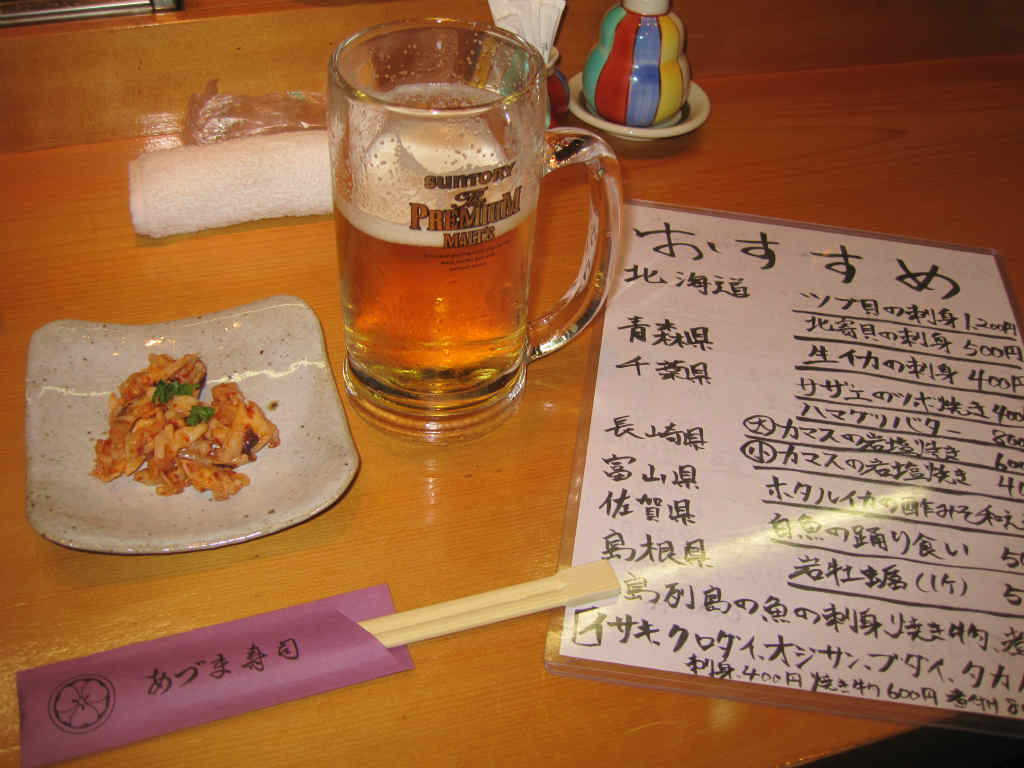 SUNTORY
The
PREMIUM
MALT'S
おすすめ
北海道
ツブ貝の刺身 1,200円
北寄貝の刺身 500円
青森県
生イカの刺身 400円
千葉県
サザエのツボ焼き 400
ハマグリバター 800
長崎県
大 カマスの岩塩焼き 600
小 カマスの岩塩焼き
富山県
ホタルイカの酢みそ和え
佐賀県
白魚の踊り食い
島根県
岩牡蠣(1ケ)
島列島の魚の刺身、焼き物、煮
イサキ、クロダイ、オジサン、ブダイ、タカ
刺身400円 焼き物600円 煮付け
あづま寿司